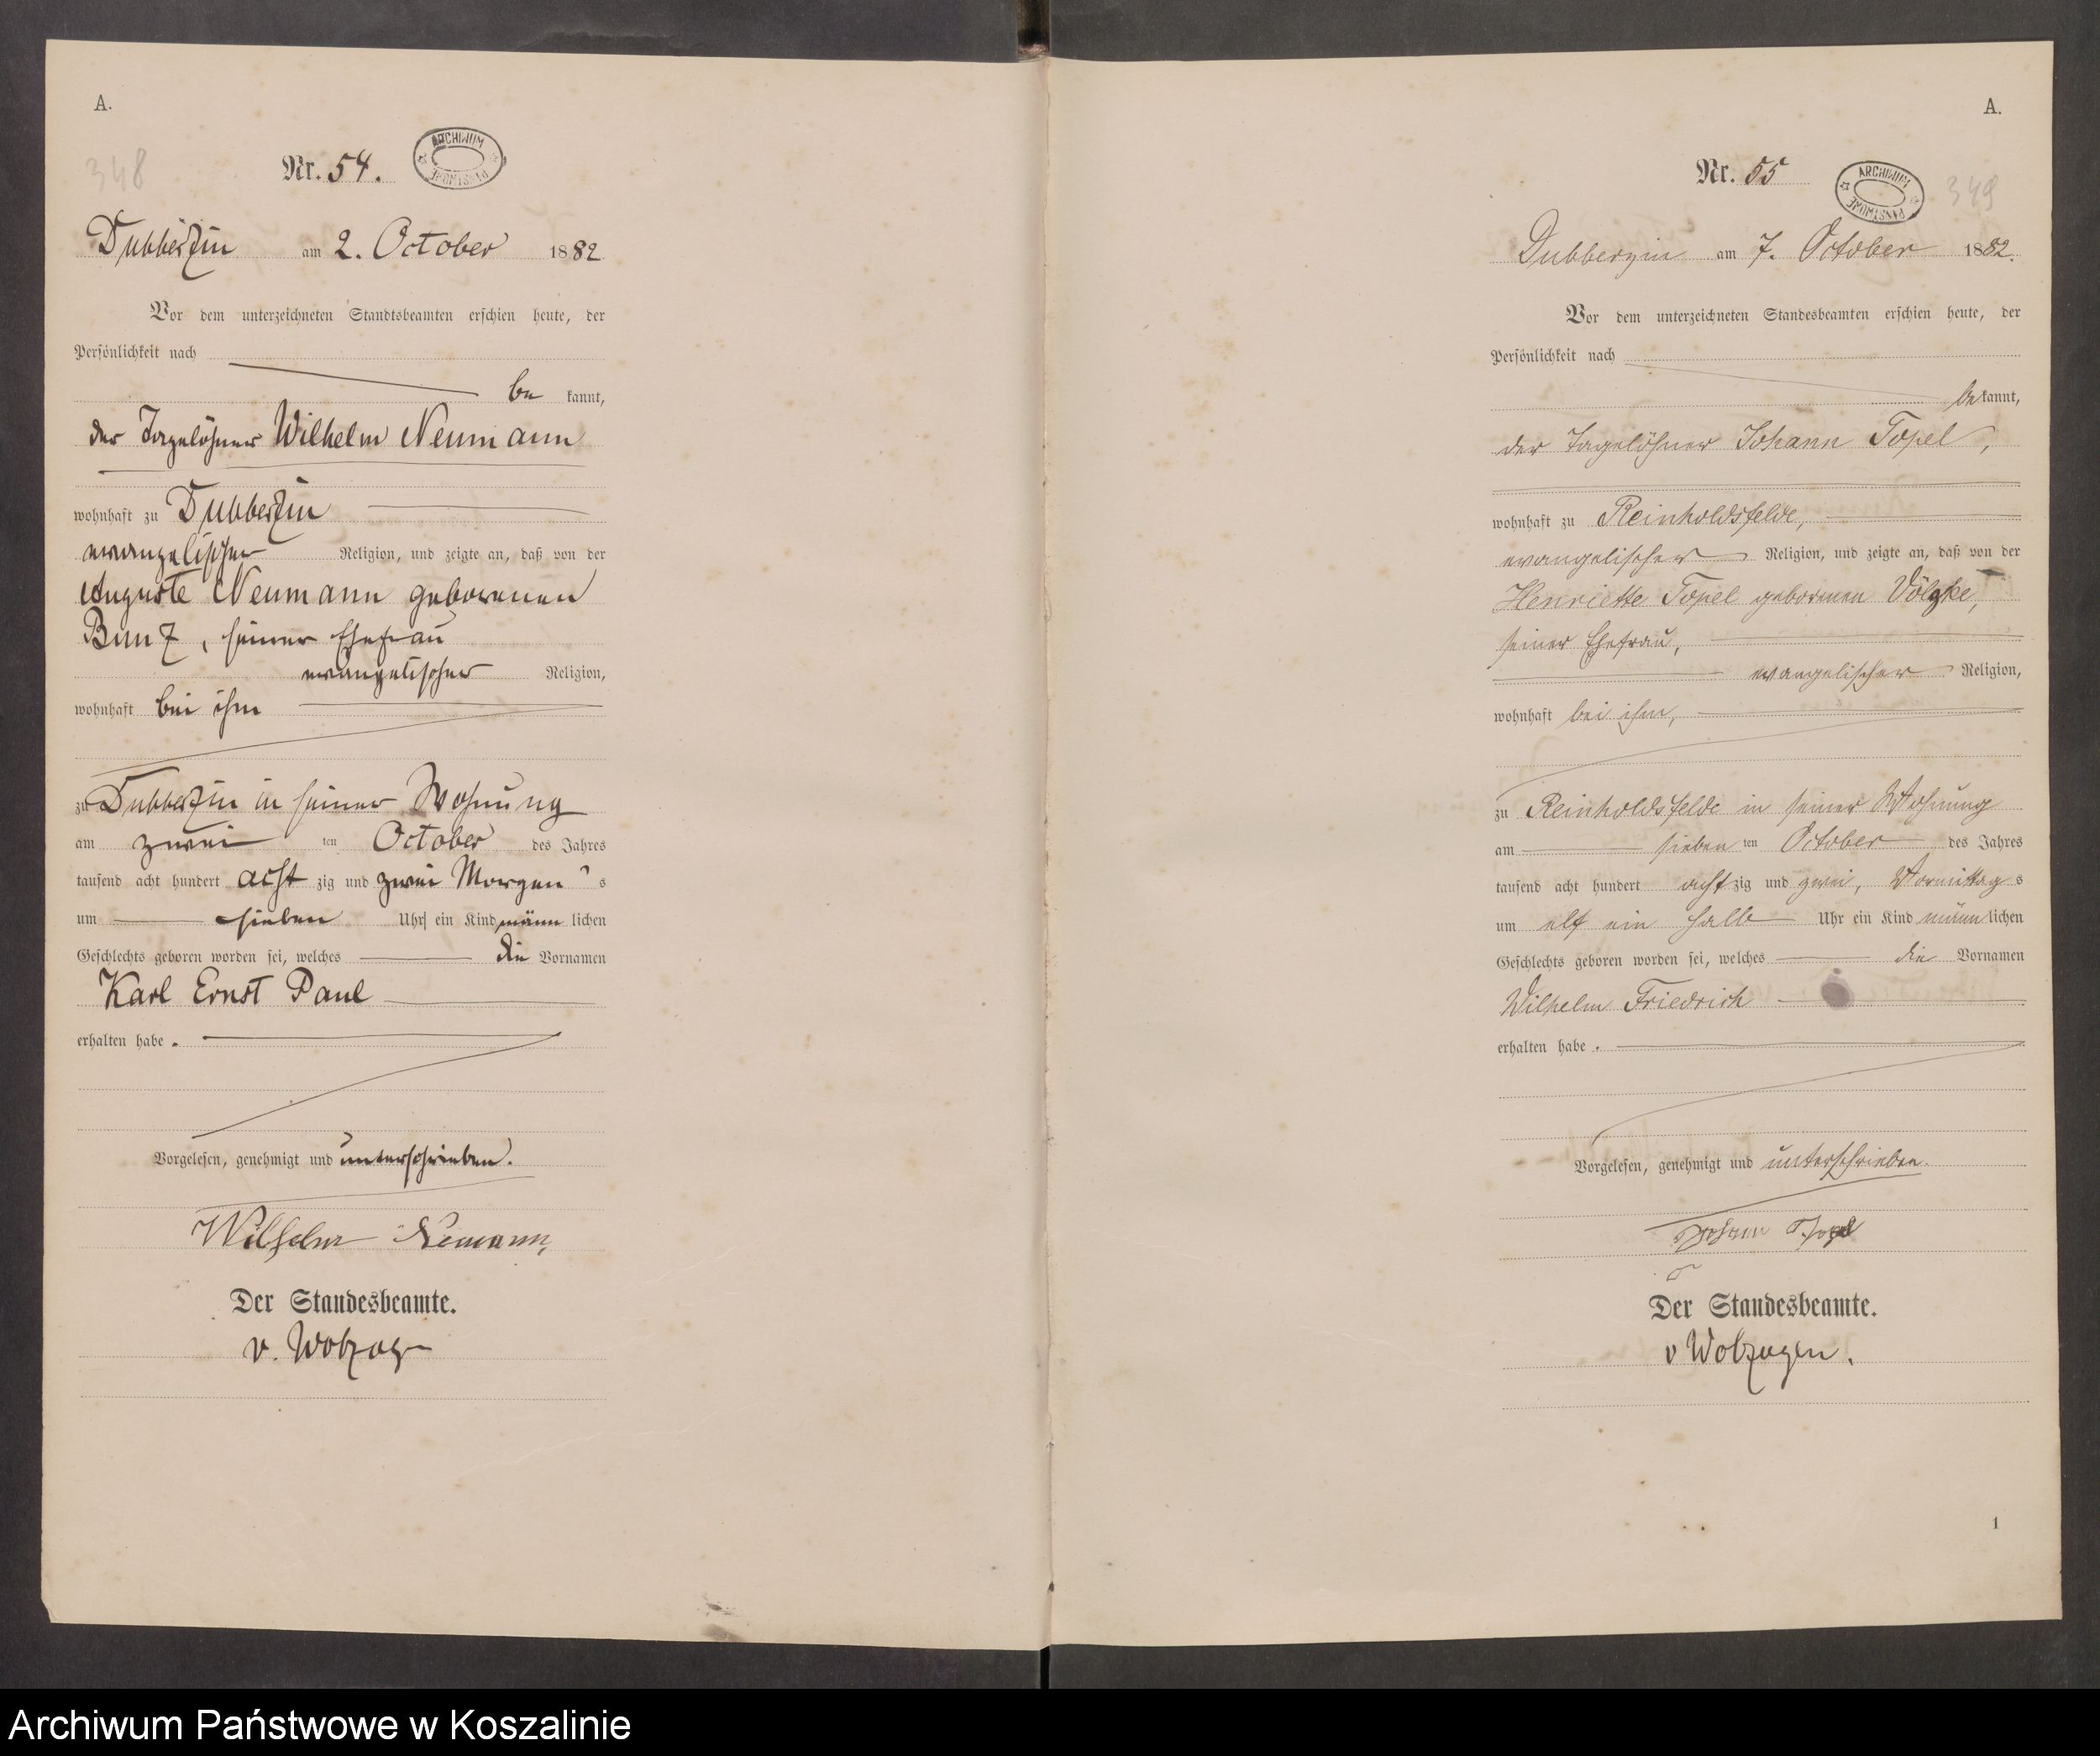 A.
348
Nr. 54.
ARCHIWUM PAŃSTWOWE
Dubberzin am 2. October 1882
Vor dem unterzeichneten Standtsbeamten erschien heute, der
Persönlichkeit nach
be kannt,
der Tagelöhner Wilhelm Neumann
wohnhaft zu Dubberzin
evangelischer Religion, und zeigte an, daß von der
Auguste Neumann geborenen
Bunz, seiner Ehefrau
evangelischer Religion,
wohnhaft bei ihm
zu Dubberzin in seiner Wohnung
am zwei ten October des Jahres
tausend acht hundert acht zig und zwei Morgen s
um sieben Uhr ein Kind männ lichen
Geschlechts geboren worden sei, welches die Vornamen
Karl Ernst Paul
erhalten habe.
Vorgelesen, genehmigt und unterschrieben.
Wilhelm Neumann,
Der Standesbeamte.
v. Wolzogen
A.
Nr. 55
ARCHIWUM PAŃSTWOWE
349
Dubberzin am 7. October 1882.
Vor dem unterzeichneten Standesbeamten erschien heute, der
Persönlichkeit nach
bekannt,
der Tagelöhner Johann Topel,
wohnhaft zu Reinholdsfelde,
evangelischer Religion, und zeigte an, daß von der
Henriette Topel gebornen Völzke,
seiner Ehefrau,
evangelischer Religion,
wohnhaft bei ihm,
zu Reinholdsfelde in seiner Wohnung
am sieben ten October des Jahres
tausend acht hundert acht zig und zwei, Vormittag s
um elf ein halb Uhr ein Kind männ lichen
Geschlechts geboren worden sei, welches die Vornamen
Wilhelm Friedrich
erhalten habe.
Vorgelesen, genehmigt und unterschrieben.
Johann Topel
Der Standesbeamte.
v Wolzogen.
1
Archiwum Państwowe w Koszalinie